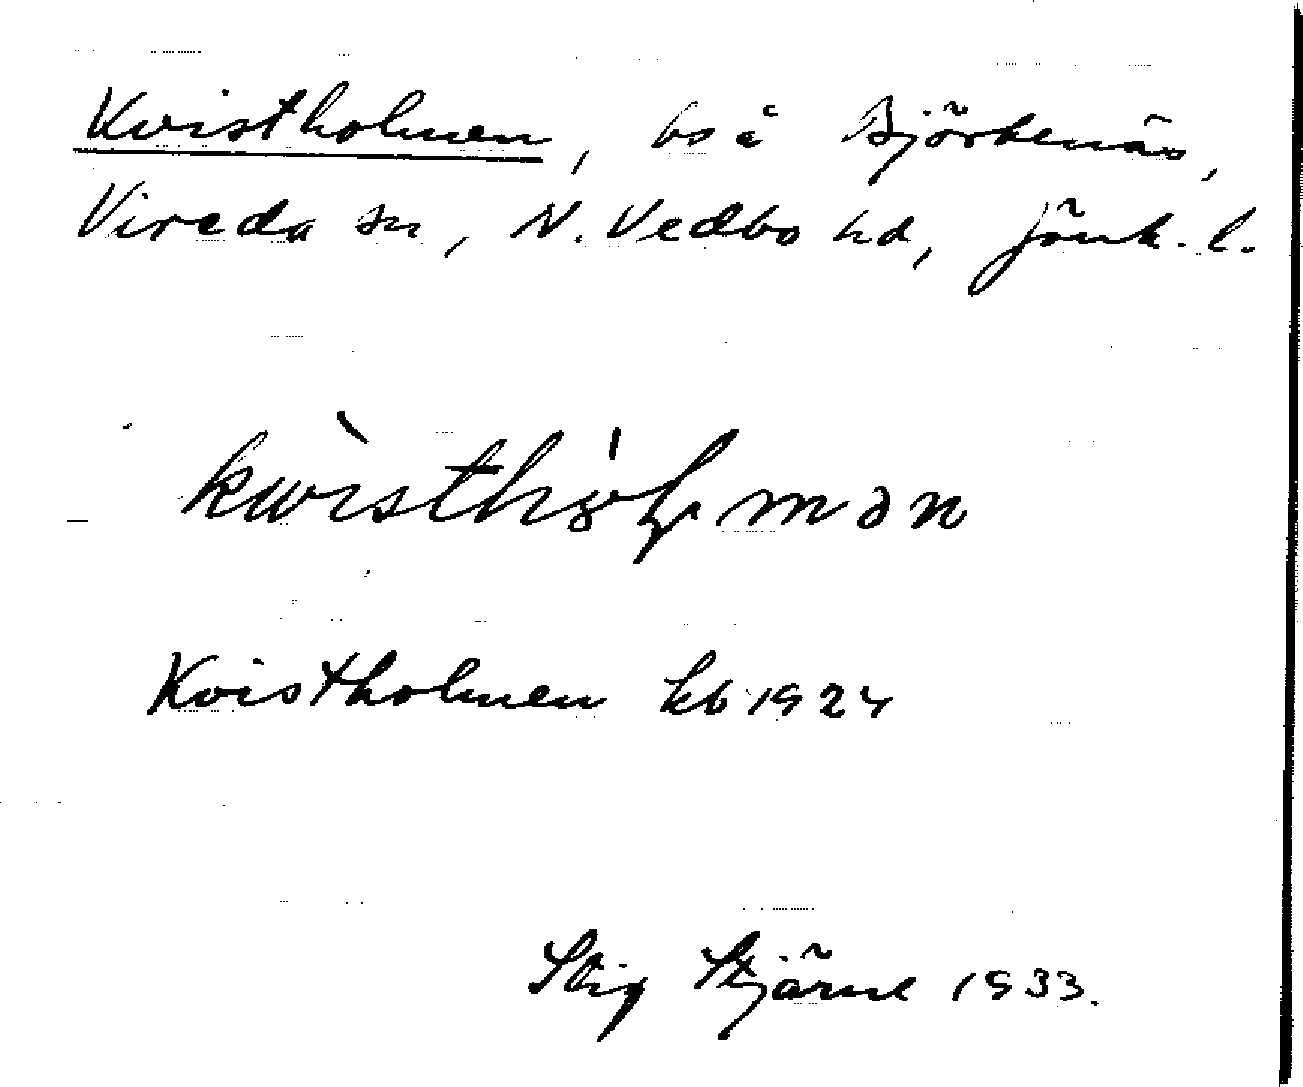 Kvistholmen, bs å Björkenäs,
Vireda sn, N. Vedbo hd, Jönk. l.
kwìsthól̥mən
Kvistholmen kb 1924
Stig Stjärne 1933.